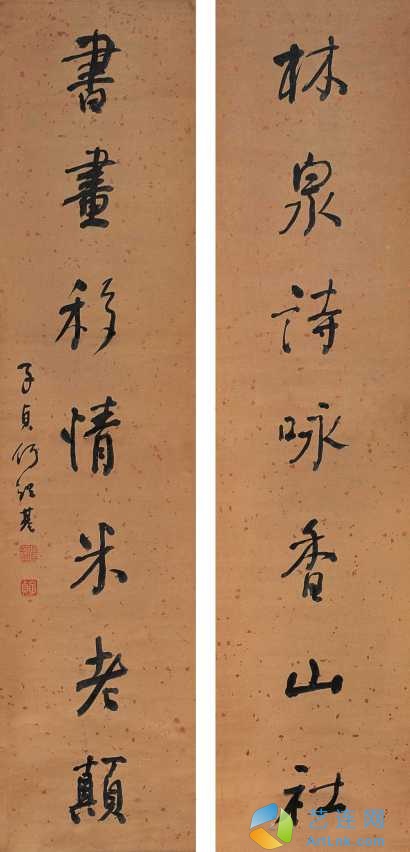 林泉詩咏香山社
書畫移情米老顛
子貞何紹基